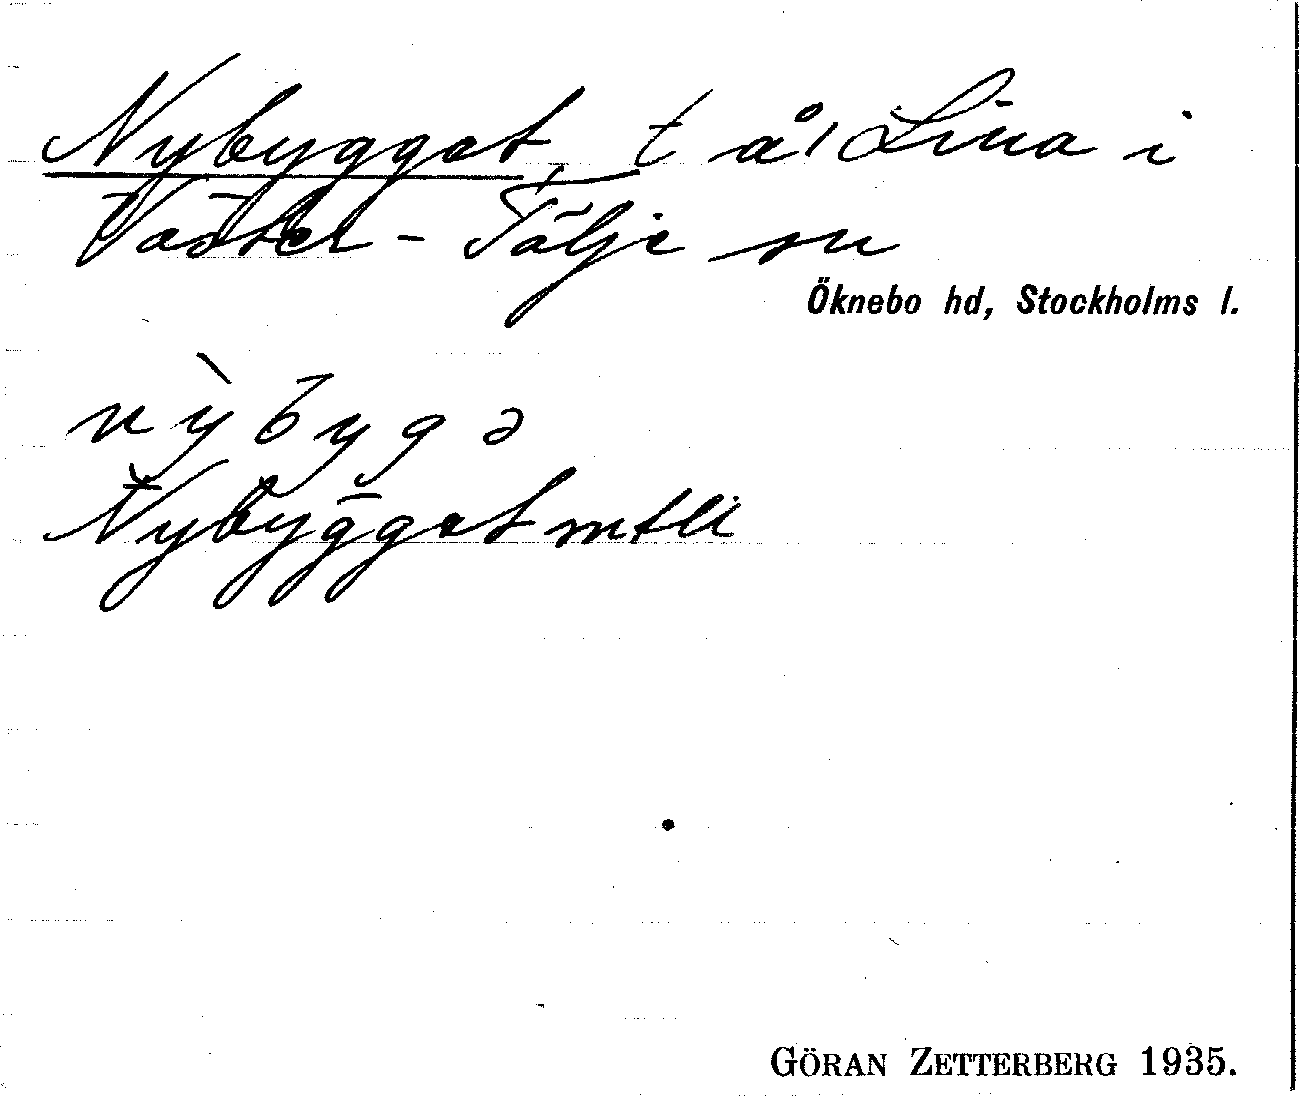 Nybygget, t å, Lina i
Väster-Tälje sn
Öknebo hd, Stockholms l.
nỳbygə
Nybygget mtll
GÖRAN ZETTERBERG 1935.